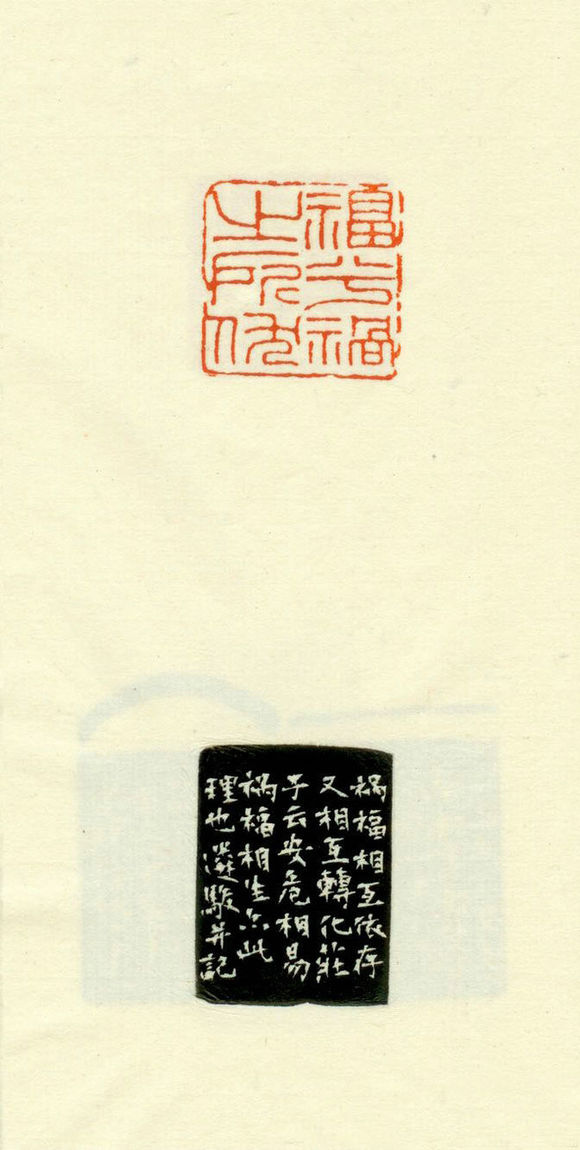 福兮禍
之所伏
禍福相互依存
又相互轉化莊
子云安危相易
禍福相生亦此
理也駿并記